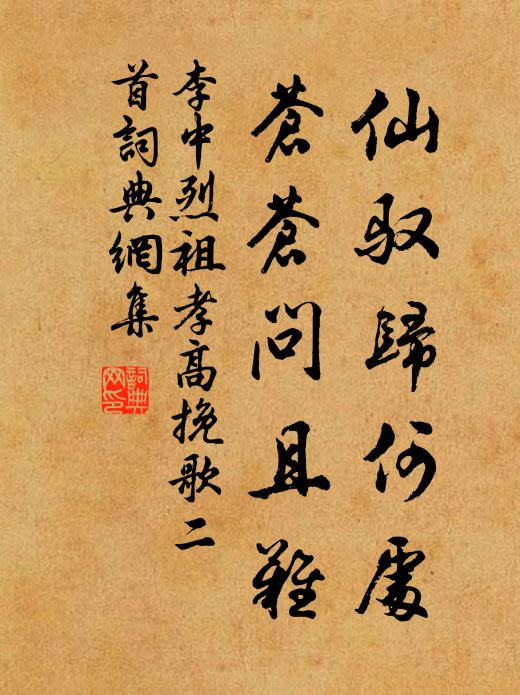 仙驭歸何處
蒼蒼問且難
李中烈祖孝高挽歌二
首詞典網集
詞典
网印